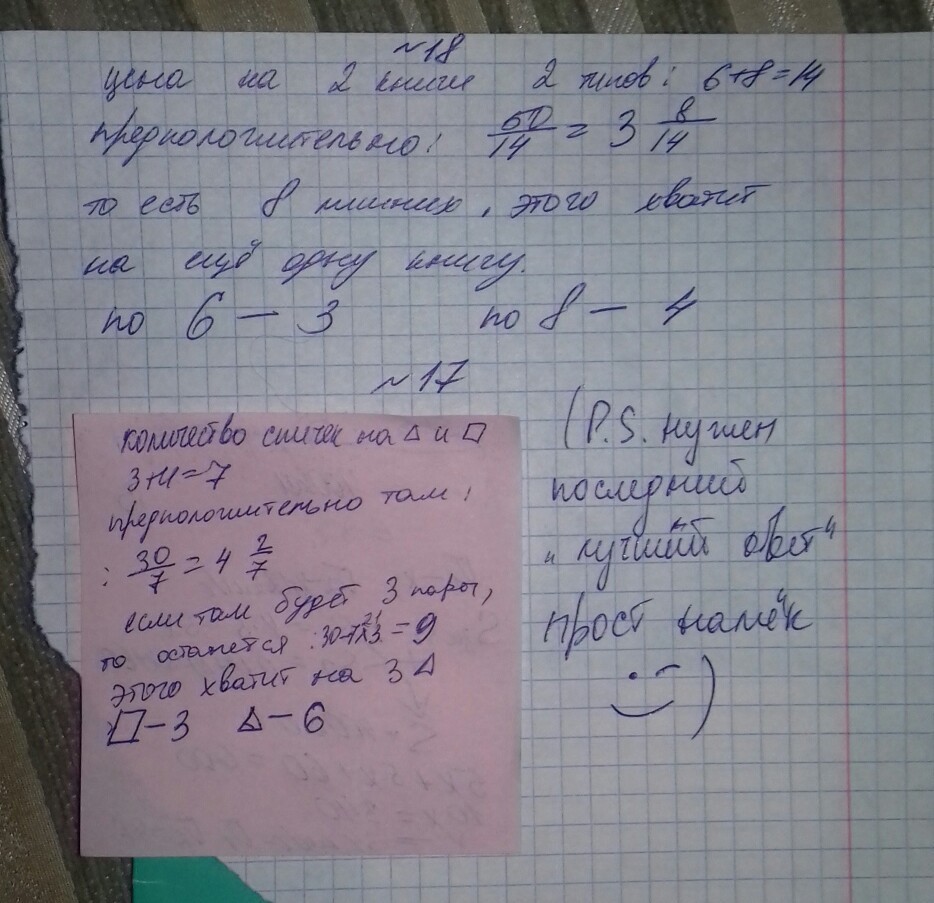 ~18
цена на 2 книги 2 типов: 6+8=14
предположительно: 50/14 = 3 8/14
то есть 8 лишних, этого хватит
на ещё одну книгу.
по 6 — 3 по 8 — 4
~17
количество спичек на △ и □
3+4=7
предположительно там:
: 30/7 = 4 2/7
если там будет 3 пары,
то останется :30-7x3 = 9
21
этого хватит на 3 △
□-3 △-6
(P.S. нужен
последний
„лучший ответ"
прост намёк
)